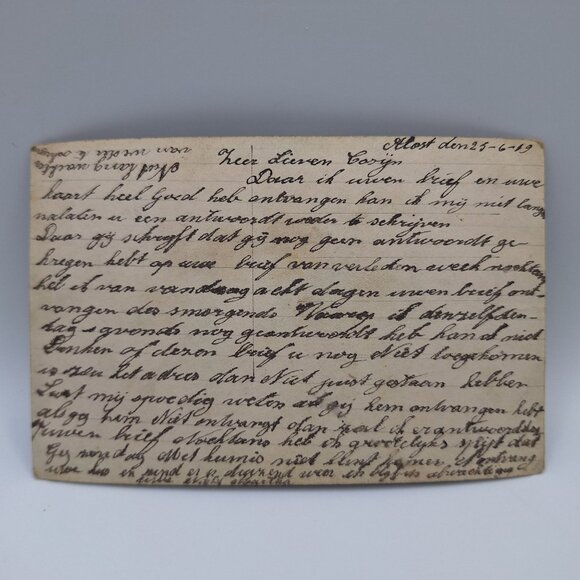 Alost den 25-6-19
Zeer Lieven Cozijn
Daar ik uwen brief en uwe
kaart heel Goed heb ontvangen kan ik mij niet lang
nalaten u een antwoordt weder te schrijven
Daar gij schrijft dat gij nog geen antwoordt ge-
kregen hebt op uwe brief van verleden week nochtans
heb ik van vandaag acht dagen uwen brief ont-
vangen des smorgends Waarop ik denzelfden-
dag savonds nog geantwoordt heb kan ik niet
Denken of dezen brief u nog Niet toegekomen
is zou het adres dan Niet juist gestaan hebben
Laat mij spoedig weten als gij hem ontvangen hebt
als gij hem Niet ontvangt dan zal ik er antwoorden
uwen brief nochtans heb ik spijt dat
Gij van dag Met kunt komen ontvang
en
Niet lang wachten
van weder te